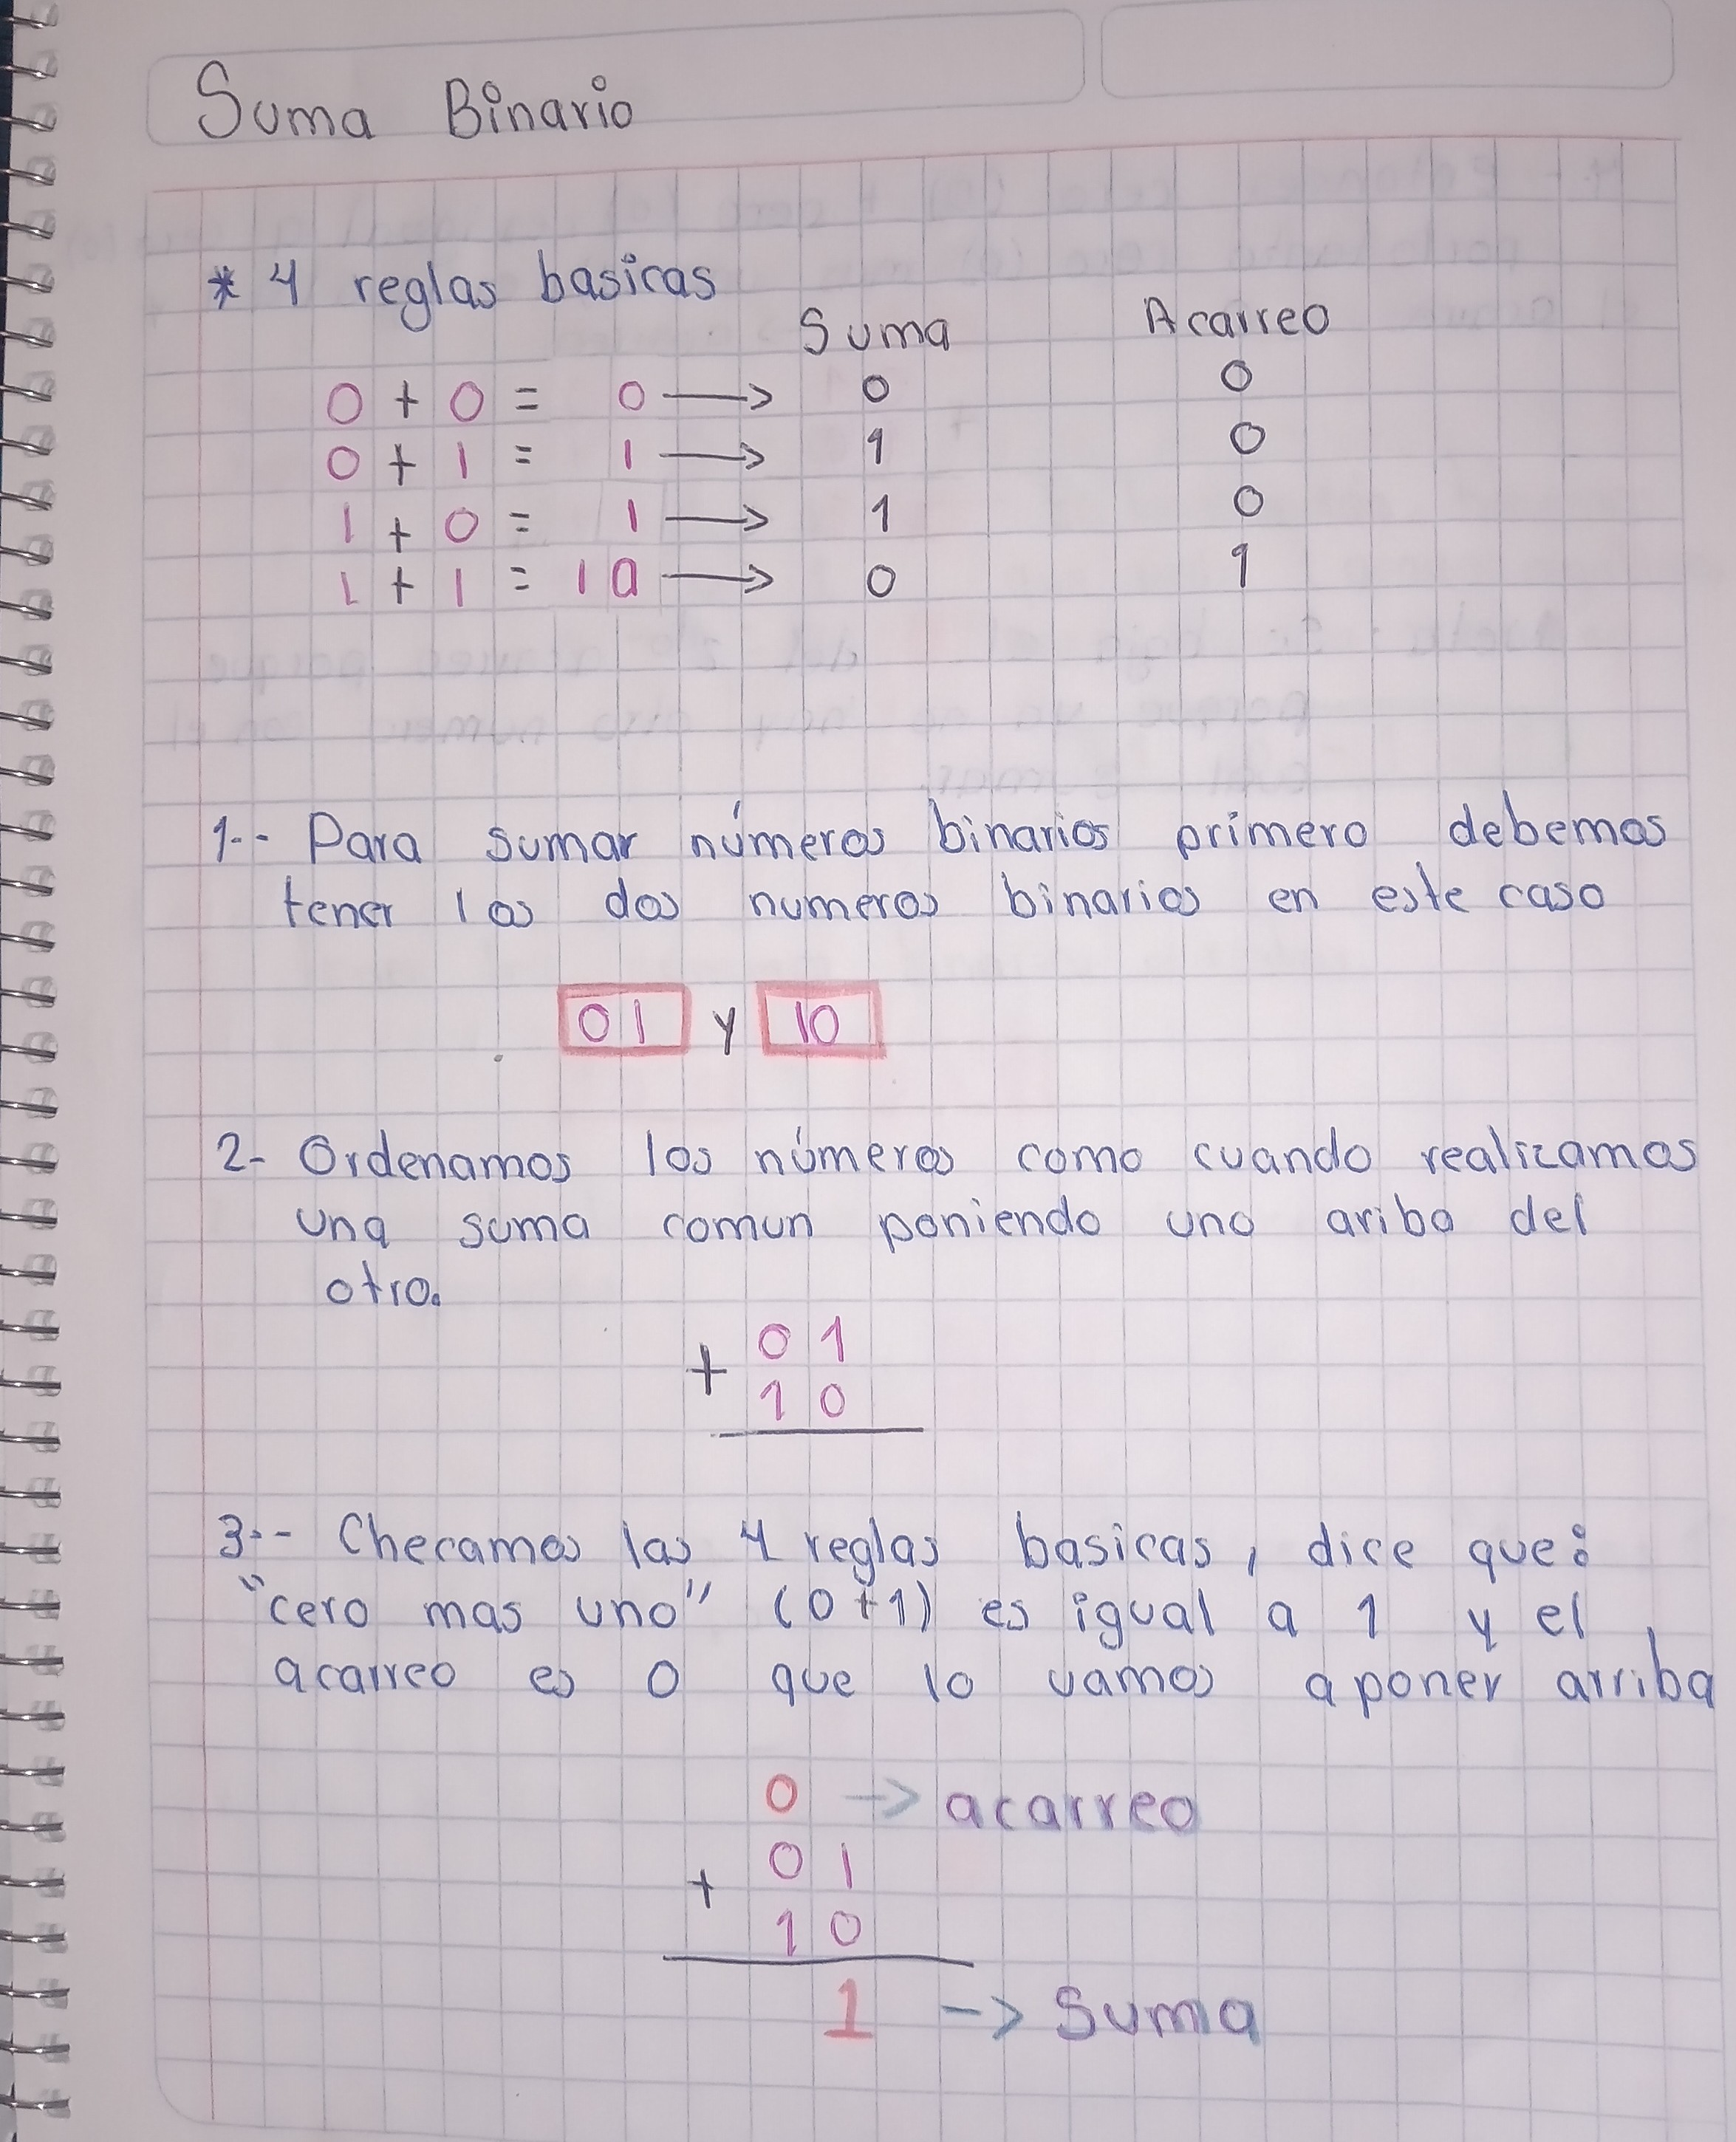 Suma Binario
* 4 reglas basicas
Suma Acarreo
0 + 0 = 0 → 0 0
0 + 1 = 1 → 1 0
1 + 0 = 1 → 1 0
1 + 1 = 10 → 0 1
1.- Para sumar números binarios primero debemos
tener los dos numeros binarios en este caso
01 y 10
2- Ordenamos los números como cuando realizamos
una suma comun poniendo uno ariba del
otro.
01
+
10
3.- Checamos las 4 reglas basicas, dice que:
"cero mas uno" (0+1) es igual a 1 y el
acarreo es 0 que lo vamos a poner arriba
0 -> acarreo
01
+
10
1 -> Suma